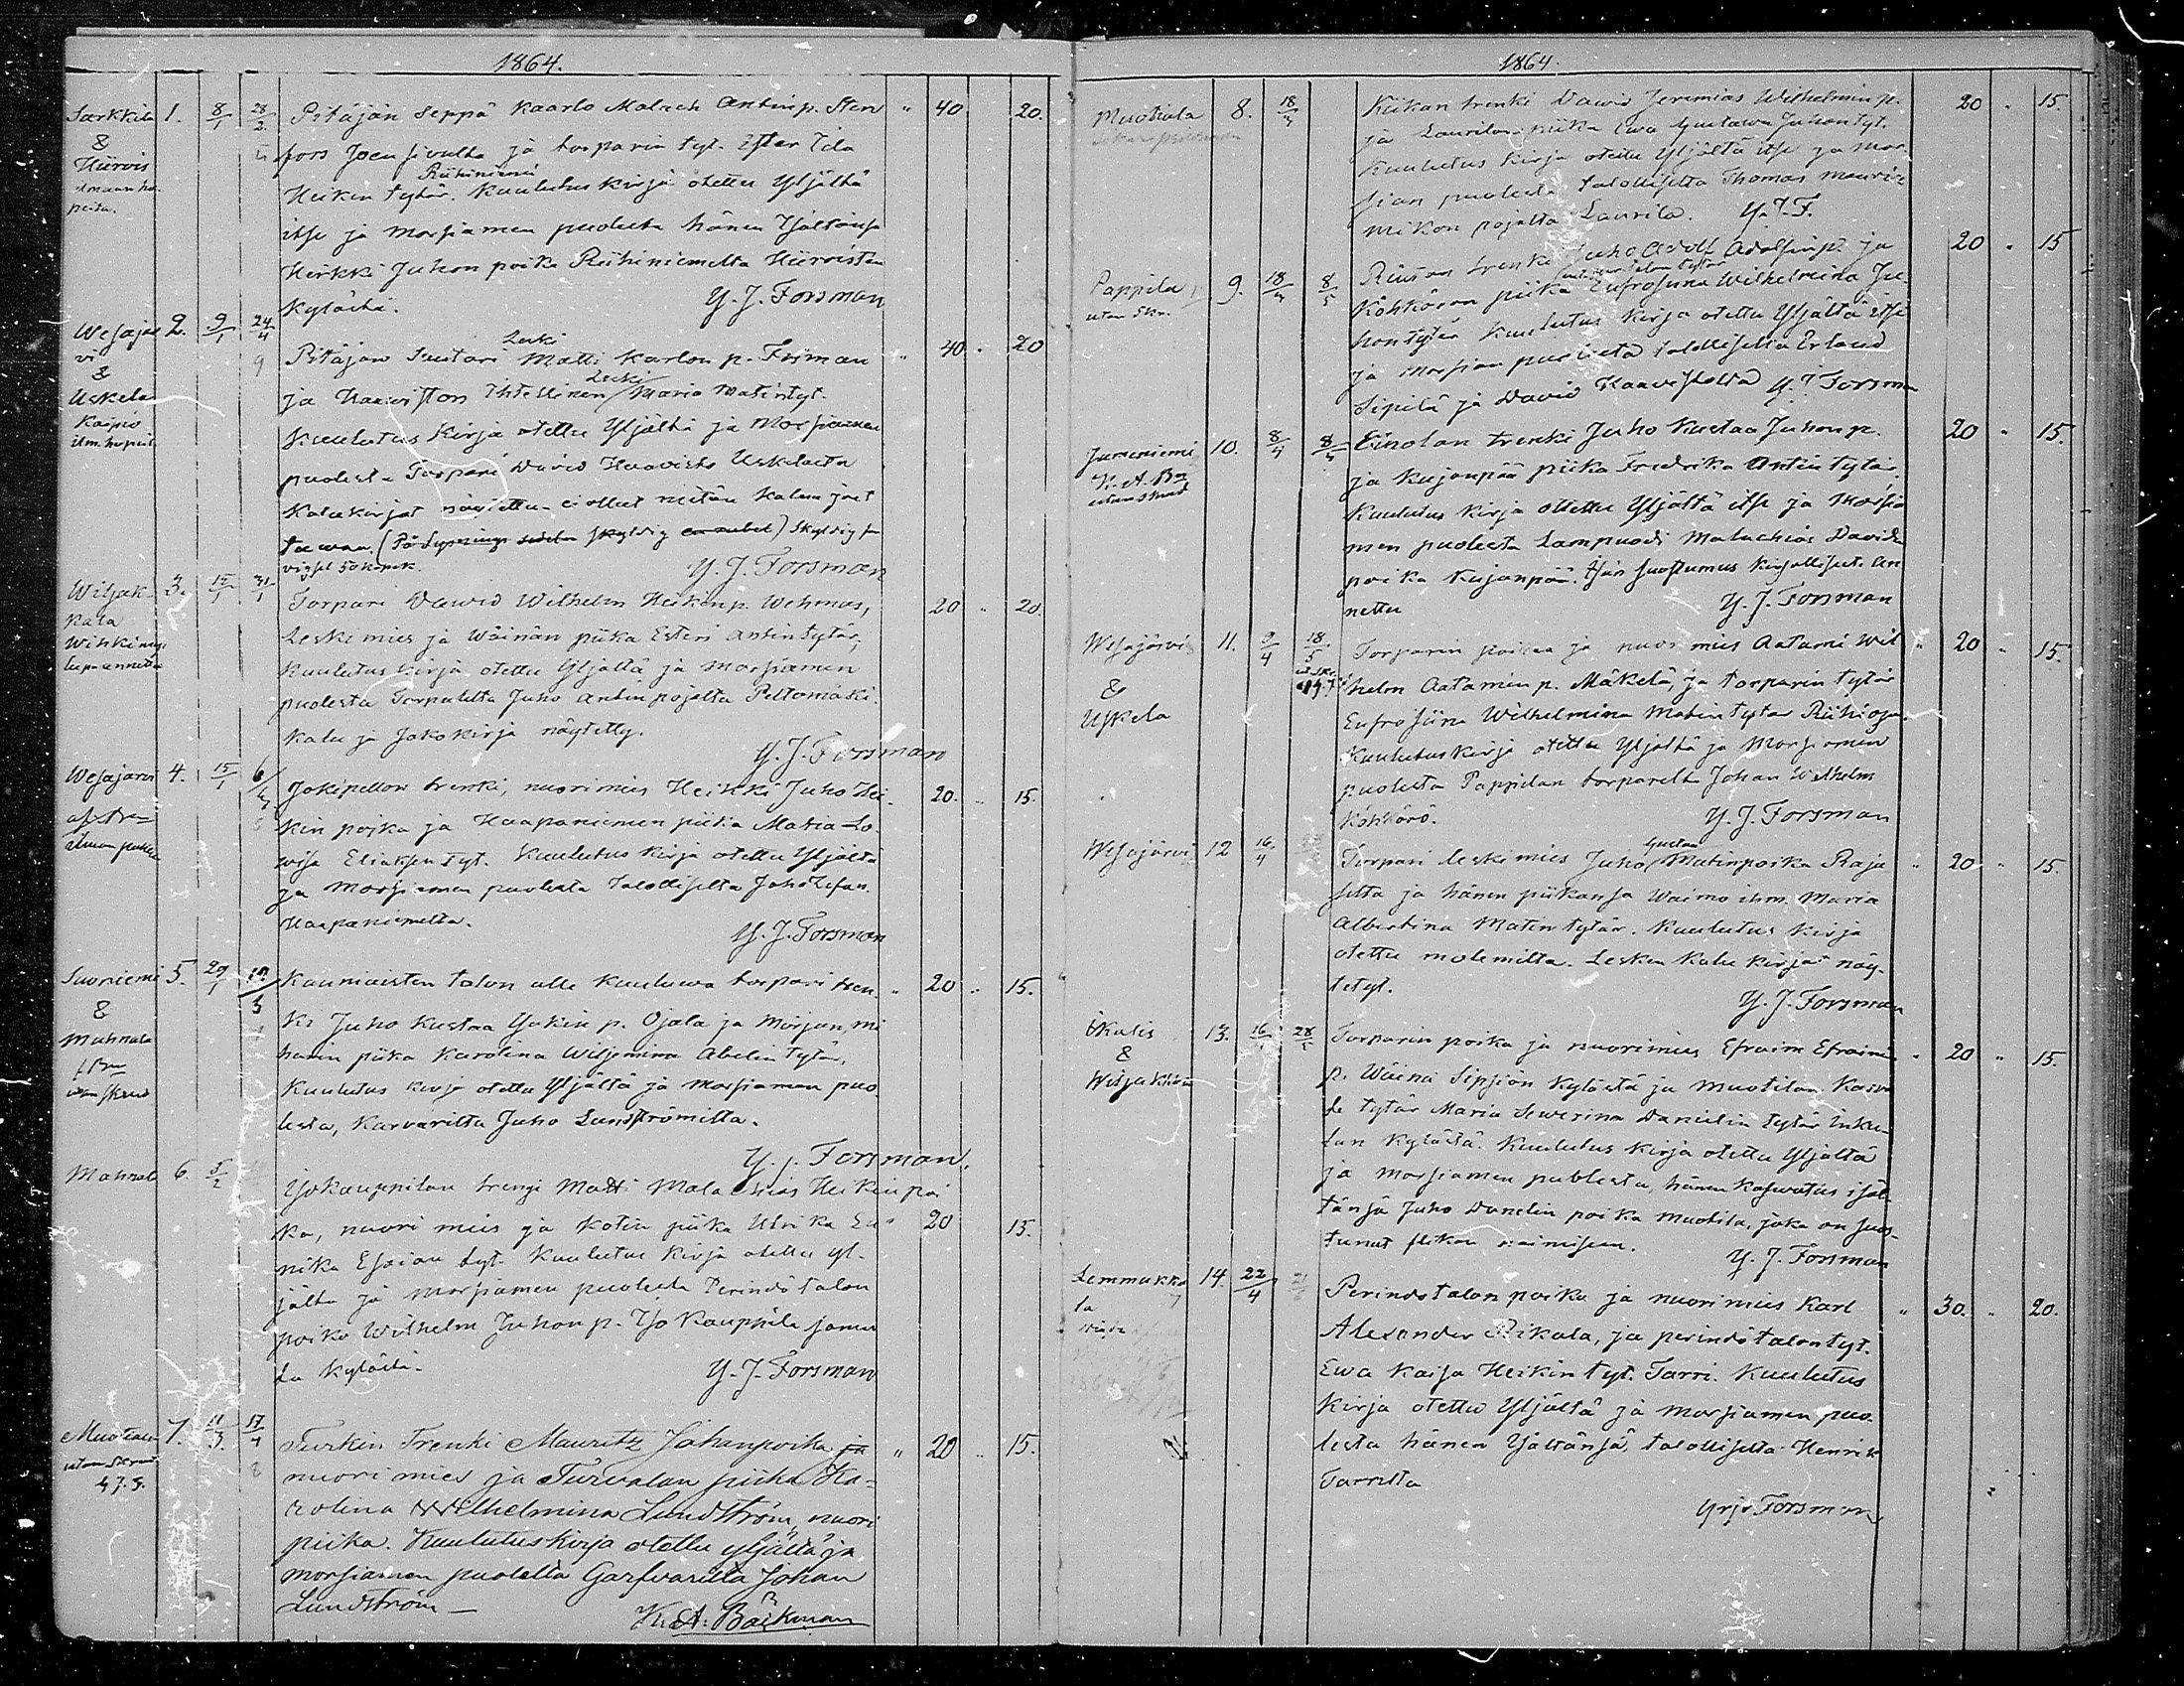 1864.
Sarkkila 1. 8/1 28/2 Pitäjän Seppä Kaarlo Malach Antinp. Sten " 40 20.
& fors Joensivulta ja torparin tyt. Ester Ida
Hiirvis Riihiniemi
Heikin tytär. Kuulutus kirja otettu Yljältä
itse ja morsiamen puolesta hänen Isältänsä
Heikki Juhon poika Riihiniemeltä Hiirvisten
Kylästä. Y. J. Forsman
Wesajär 2. 9/1 24/4 Leski
vi 9 Pitäjän Suutari Matti Karlon p. Forsman " 40 " 20
& Leski
Uskela ja Haaviston Ihtellinen Maria Matintyt.
Kaipio Kuulutus Kirja otettu Yljältä ja Morsiamen
puolesta Torpari David Haavisto Uskelasta
Kalukirjat näytettu - ei ollut mitän
(På Lysnings sedeln skyldig) Skyldig
50 kopek. Y. J. Forsman
Wiljak- 3. 15/1 31/1 Torpari Dawid Wilhelm Heikinp. Wehmas, 20 " 20.
kala Leski mies ja Wäinän piika Esteri Antintytär,
Kuulutus kirja otettu Yljältä ja morsiamen
puolesta Torparilta Juho Antinpojalta Peltomäki.
Kalu ja Jakokirja näytetty.
Y. J. Forsman
Wesajärvi 4. 15/1 Jokipellon trenki, nuorimies Heikki Juho Hei- 20. " 15.
kin poika ja Haapaniemen piika Maria Lo-
wisa Eliaksen tyt. Kuulutus kirja otettu Yljältä
ja Morsiamen puolesta talolliselta
Haapaniemelta. Y. J. Forsman
Suoniemi 5. 29/1 Kaumaisten talon alle kuuluwa torpari tren- " 20 " 15.
& ki Juho Kustaa Yokin p. Ojala ja
Mahnala piika Karolina Wilhemina Abelin tytär,
Kuulutus kirja otettu Yljältä ja Morsiamen puo
lesta, Karvarilta Juho Lundströmilta.
Y. J. Forsman.
Mahnala 6. 5/2 Isokauppilan trengi Matti Malachias Heikin poi
ka, nuori mies ja Kotin piika Ulrika Eu- " 20 15.
nika Esaian tyt. Kuulutus kirja otettu yl-
jältä ja morsiamen puolesta Perindötalon
poika Wilhelm Juhon p. Iso Kauppila samas
ta Kylästä. Y. J. Forsman
7. 11/3. 17/4 Turkin Trenki Mauritz Johanpoika ja " 20 " 15.
8 nuori mies ja Turvalan piika Ka-
rolina Wilhelmina Lundström, nuori
piika. Kuulutuskirja otettu yljältä ja
morsiamen puolelta Garfvarilta Johan
Lundström - K. A. Bäckman
1864.
Muotiala 8. 18/4 Kiikan trenki Dawid Jeremias Wilhelmin p. 20 " 15.
ja Laurilan piika Ewa Gustawa Juhon tyt.
Kuulutus kirja otettu Yljältä itse ja mor-
sian puolesta talolliselta Thomas Mauri-
mikon pojalta Laurila. Y. J. F.
Pappila 9. 18/4 8/5 Riiian trenki Juho Adolf Adolfin p. ja 20 " 15
utan Skr. Köhkörön piika Eufrosyna Wilhelmina Ju-
hontytär Kuulutus Kirja otettu Yljältä itse
ja morsian puolesta talolliselta Erland
Sipilä ja David Haavistolta Y. J. Forsman
Jumeniemi 10. 8/4 Einolan trenki Juho Kustaa Juhon p. 20 " 15.
ja Kujanpää piika Fredrika Antin tytär.
Kuulutus kirja otettu Yljältä itse ja morsia
men puolesta Lampuodi Malachias Davidin
poika Kujanpää. Isän suostumus kirjallisesti an
nettu Y. J. Forsman
Wesajärvi 11. 9/4 18/5 Torparin poika ja nuori mies Aatami Wil- " 20 " 15.
& helm Aatamin p. Mäkelä, ja torparin tytär
Uskela Eufrosiina Wilhelmina Matin tytär Riihioja.
Kuulutuskirja otettu Yljältä ja Morsiamen
puolesta Pappilan torparelta Johan Wilhelm
Köhkörö. Y. J. Forsman
Gustaa
Wesajärvi 12 16/4 Torpari leski mies Juho Matinpoika Raja " 20 " 15.
ja hänen piikansa Waimo ihm. Maria
Albertina Matin tytär. Kuulutus kirja
otettu molemilta. Lesken Kalu kirjat näy-
tetyt. Y. J. Forsman
Ikalis 13. Torparin poika ja nuorimies Efraim Efraimin " 20 " 15.
& p. Wäinä Sipsiön kylästä ja Muotilan Kasva
te tytär Maria Sewerina Danielin tytär Inku-
lan kylästä. Kuulutus kirja otettu Yljältä
ja morsiamen puolesta, hänen kaswatus isäl-
tänsä Juho Danelin poika Muotila, joka on suos-
tunut naimiseen. Y. J. Forsman
Lemmakka 14. 22/4 Perindötalon poika ja nuori mies Karl " 30. " 20.
la Alexander Rikala, ja perindötalon tyt.
Ewa Kaisa Heikin tyt. Tarri. Kuulutus
Kirja otettu Yljältä ja morsiamen puo-
lesta hänen Isältänsä, talolliselta Henrik
Tarrilta
Yrjö Forsman